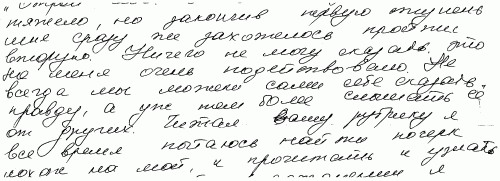 тяжело, но закончив первую ступень
мне сразу же захотелось пройти
вторую. Ничего не могу сказать, это
на меня очень подействовало. Не
всегда мы можем сами себе сказать
правду, а уж тем более слышать её
от других. Читая Вашу рубрику я
все время пытаюсь найти почерк
похож на мой, и прочитать и узнать
я